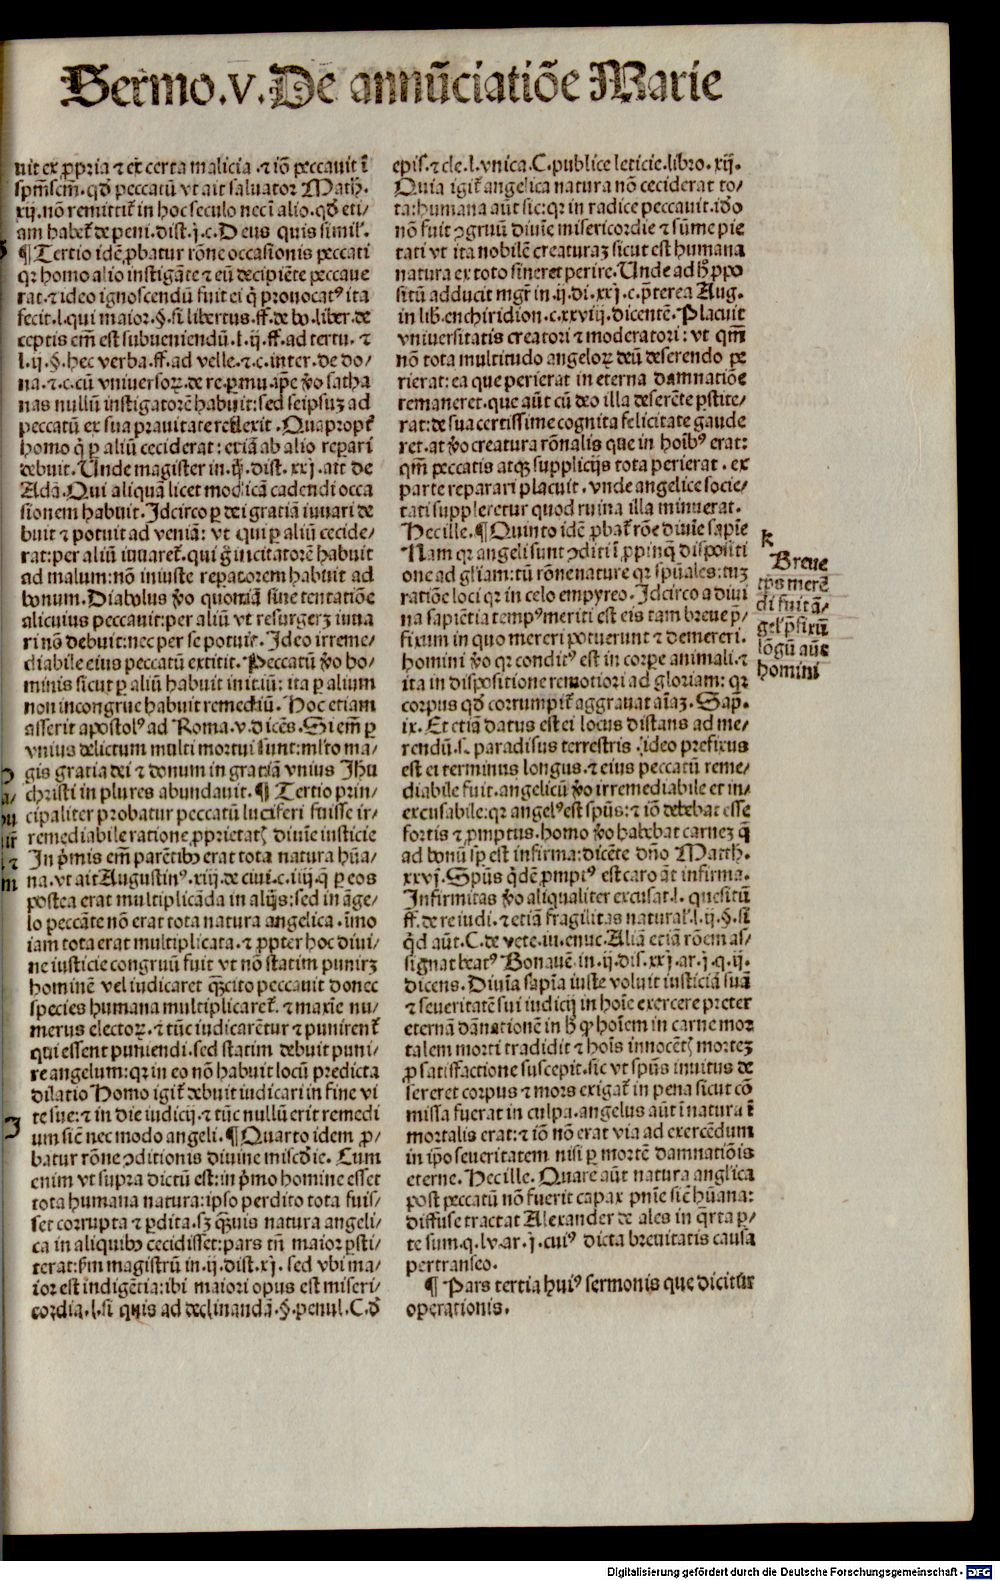 Sermo.v.De annūciatiōe Marie
uit ex ꝓpria ⁊ ex certa malicia.⁊ iō peccauit ī
spm̄scm̄.qđ peccatū vt ait saluator Math.
xij.nō remittit̄ in hoc seculo nec ī alio.qđ eti/
am habet̄ de peni.dist.j.c.Deus quis simil'.
¶Tertio idē ꝓbatur rōne occasionis peccati
qr homo alio instigāte ⁊ eū decipiēte peccaue
rat.⁊ ideo ignoscendū fuit ei q̇ prouocatꝰ ita
fecit.l.qui maior.§.si libertus.ff.de bo.liber.de
ceptis em̄ est subueniendū.l.ij.ff.ad tertu.⁊
l.ij.§.hec verba.ff.ad velle.⁊.c.inter.de do/
na.⁊.c.cū vniuersoꝝ.de re.ꝑmu.ap̄e ꝟo satha
nas nullū instigatorē habuit:sed seipsuꝫ ad
peccatū ex sua prauitate reflexit.Quapropt̄
homo q̇ ꝑ aliū ceciderat:etiā ab alio repari
debuit.Unde magister in.ij.dist.xxj.ait de
Adā.Qui aliquā licet modicā cadendi occa
sionem habuit.Idcirco ꝑ dei gratiā iuuari de
buit ⁊ potuit ad veniā:vt qui ꝑ aliū cecide/
rat:per aliū iuuaret̄.qui g̊ incitatorē habuit
ad malum:nō iniuste reꝑatorem habuit ad
bonum.Diabolus ꝟo quoniā sine tentatiōe
alicuius peccauit:per aliū vt resurgerꝫ iuua
ri nō debuit:nec per se potuit.Ideo irreme/
diabile eius peccatū extitit.Peccatū ꝟo ho/
minis sicut ꝑ aliū habuit initiū:ita ꝑ alium
non incongrue habuit remediū.Hoc etiam
asserit apostolꝰ ad Roma.v.dicēs.Si em̄ ꝑ
vnius delictum multi mortui sunt:ml'to ma/
gis gratia dei ⁊ donum in gratiā vnius Jhu
christi in plures abundauit.¶Tertio prin/
cipaliter probatur peccatū luciferi fuisse ir/
remediabile ratione ꝓprietatꝭ diuine iusticie
In p̄mis em̄ parētibꝰ erat tota natura hūa/
na.vt ait Augustinꝰ.xiij.de ciui.c.iiij.q̄ ꝑ eos
postea erat multiplicāda in alijs:sed in āge/
lo peccāte nō erat tota natura angelica.īmo
iam tota erat multiplicata.⁊ ꝓpter hoc diui/
ne iusticie congruū fuit vt nō statim punirꝫ
hominē vel iudicaret qꝫcito peccauit donec
species humana multiplicaret̄.⁊ maxie nu/
merus electoꝝ.⁊ tūc iudicarētur ⁊ punirent̄
qui essent puniendi.sed statim debuit puni/
re angelum:qr in eo nō habuit locū predicta
dilatio Homo igit̄ debuit iudicari in fine vi
te sue:⁊ in die iudicij.⁊ tūc nullū erit remedi
um sic̄ nec modo angeli.¶Quarto idem ꝓ/
batur rōne ꝯditionis diuine miscđie.Cum
enim vt supra dictū est:in p̄mo homine esset
tota humana natura:ipso perdito tota fuis/
set corrupta ⁊ ꝑdita.sꝫ qꝫuis natura angeli/
ca in aliquibꝰ cecidisset:pars tn̄ maior ꝑsti/
terat:ẜm magistrū in.ij.dist.xj.sed vbi ma/
ior est indigētia:ibi maiori opus est miseri/
cordia.l.si quis ad declinandā.§.penul.C.đ
epis.⁊ cle.l.vnica.C.publice leticie.libro.xij.
Quia igit̄ angelica natura nō ceciderat to/
ta:humana aūt sic:qr in radice peccauit.idō
nō fuit ꝯgruū diuīe misericordie ⁊ sūme pie
tati vt ita nobilē creaturaꝫ sicut est humana
natura ex toto sineret perire.Unde ad hꝰ ꝓpo
situ adducit mgr̄ in.ij.di.xxj.c.p̄terea Aug.
in lib.enchiridion.c.xxviij.dicentē.Placuit
vniuersitatis creatori ⁊ moderatori:vt qm̄
nō tota multitudo angeloꝝ deū deserendo pe
rierat:ea que perierat in eterna damnatiōe
remaneret.que aūt cū deo illa deserēte ꝑstite/
rat:de sua certissime cognita felicitate gaude
ret.at ꝟo creatura rōnalis que in hoībꝰ erat:
qm̄ peccatis atqꝫ supplicijs tota perierat.ex
parte reparari placuit.vnde angelice socie/
tati suppleretur quod ruina illa minuerat.
Hec ille.¶Quinto idē ꝓbat̄ rōe diuīe sapīe
Nam qr angeli sunt ꝯditi ī ꝓpinq̄ dispositi
one ad gl̄iam:tū rōne nature qr spūales:tuꝫ
ratiōe loci qr in celo empyreo.Idcirco a diui
na sapiētia tempꝰ meriti est eis tam breue p̄/
fixum in quo mereri potuerunt ⁊ demereri.
homini ꝟo qr conditꝰ est in corpe animali.⁊
ita in dispositione remotiori ad gloriam:qr
corpus qđ corrumpit̄ aggrauat aīaꝫ.Sap̄.
ix.Et etiā datus est ei locus distans ad me/
rendū.s.paradisus terrestris.ideo prefixus
est ei terminus longus.⁊ eius peccatū reme/
diabile fuit.angelicū ꝟo irremediabile et in/
excusabile:qr angelꝰ est spūs:⁊ iō debebat esse
fortis ⁊ ꝓmptus.homo ꝟo habebat carneꝫ q̄
ad bonū sp̄ est infirma:dicēte dn̄o Matth.
xxvj.Spūs q̇dē ꝓmptꝰ est caro āt infirma.
Infirmitas ꝟo aliqualiter excusat.l.quesitū
ff.de re iudi.⁊ etiā fragilitas natural'.l.ij.§.si
q̇d aūt.C.de vete.iu.enuc.Aliā etiā rōem as/
signat beatꝰ Bonauē.in.ij.dis.xxj.ar.j.q.ij.
dicens.Diuīa sapīa iuste voluit iusticiā suā
⁊ seueritatē sui iudicij in hoīe exercere preter
eternā dānationē in hꝰ qꝫ hoīem in carne mor
talem morti tradidit ⁊ hoīs innocētꝭ morteꝫ
ꝓ satisfactione suscepit.sic vt spūs inuitus de
sereret corpus ⁊ mors exigat̄ in pena sicut cō
missa fuerat in culpa.angelus aūt ī natura ī
mortalis erat:⁊ iō nō erat via ad exercēdum
in ipō seueritatem nisi ꝑ mortē damnatiōis
eterne.Hec ille.Quare aūt natura anglica
post peccatū nō fuerit capax pnīe sic̄ hūana:
diffuse tractat Alexander de ales in q̄rta p̄/
te sum.q.lv.ar.j.cuiꝰ dicta breuitatis causa
pertranseo.
¶Pars tertia huiꝰ sermonis que dicitur
operationis.
J
k
Breue
tp̄s merē
di fuit ā/
gel' p̄fixū
lōgū aūt
homini
Digitalisierung gefördert durch die Deutsche Forschungsgemeinschaft - DFG